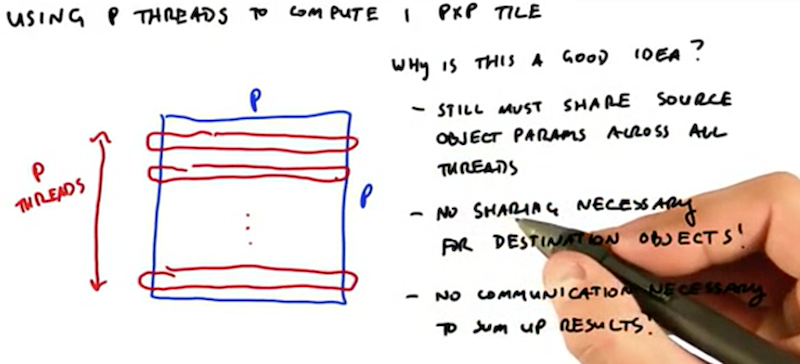 USING P THREADS TO COMPUTE 1 PXP TILE
WHY IS THIS A GOOD IDEA?
P
P THREADS
P
- STILL MUST SHARE SOURCE
OBJECT PARAMS ACROSS ALL
THREADS
- NO SHARING NECESSARY
FOR DESTINATION OBJECTS!
- NO COMMUNICATION NECESSARY
TO SUM UP RESULTS!